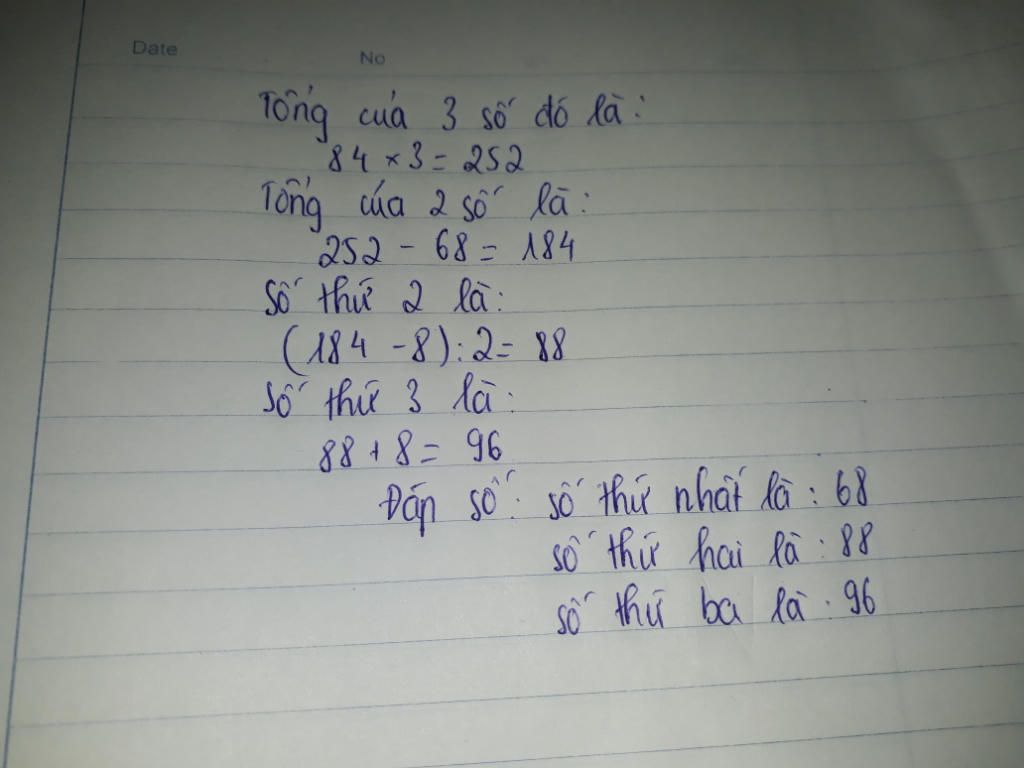 Date No
Tổng của 3 số đó là:
84 × 3 = 252
Tổng của 2 số là:
252 - 68 = 184
Số thứ 2 là:
(184 - 8) : 2 = 88
Số thứ 3 là:
88 + 8 = 96
Đáp số: số thứ nhất là: 68
số thứ hai là: 88
số thứ ba là: 96